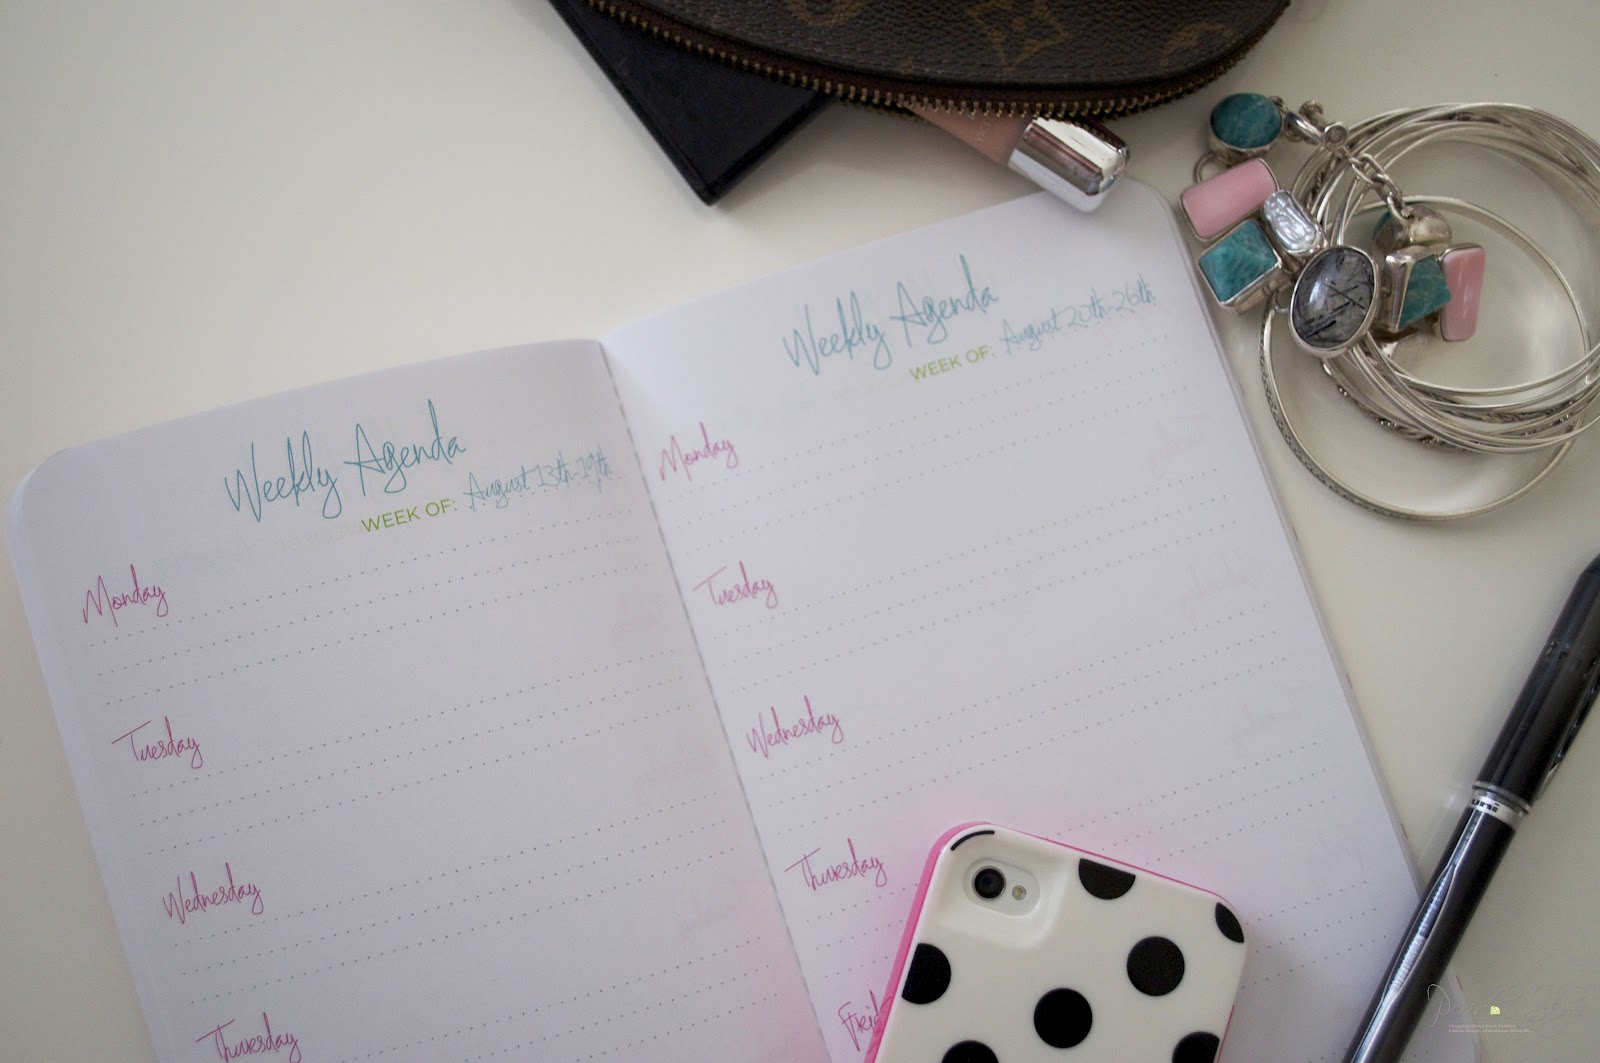 Weekly Agenda
WEEK OF: August 13th-19th
Monday
Tuesday
Wednesday
Thursday
Weekly Agenda
WEEK OF: August 20th-26th
Monday
Tuesday
Wednesday
Thursday
Frid
uni